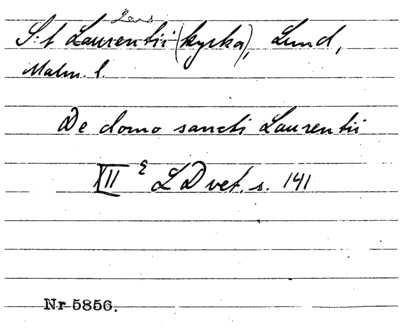 Lars
S:t Laurentii (kyrka), Lund,
Malm. l.
De domo sancti Laurentii
XII ε L D vet. s. 141
Nr 5856.